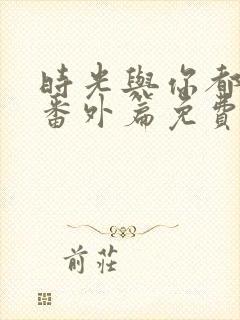 時光與你都
番外篇免費
前莊